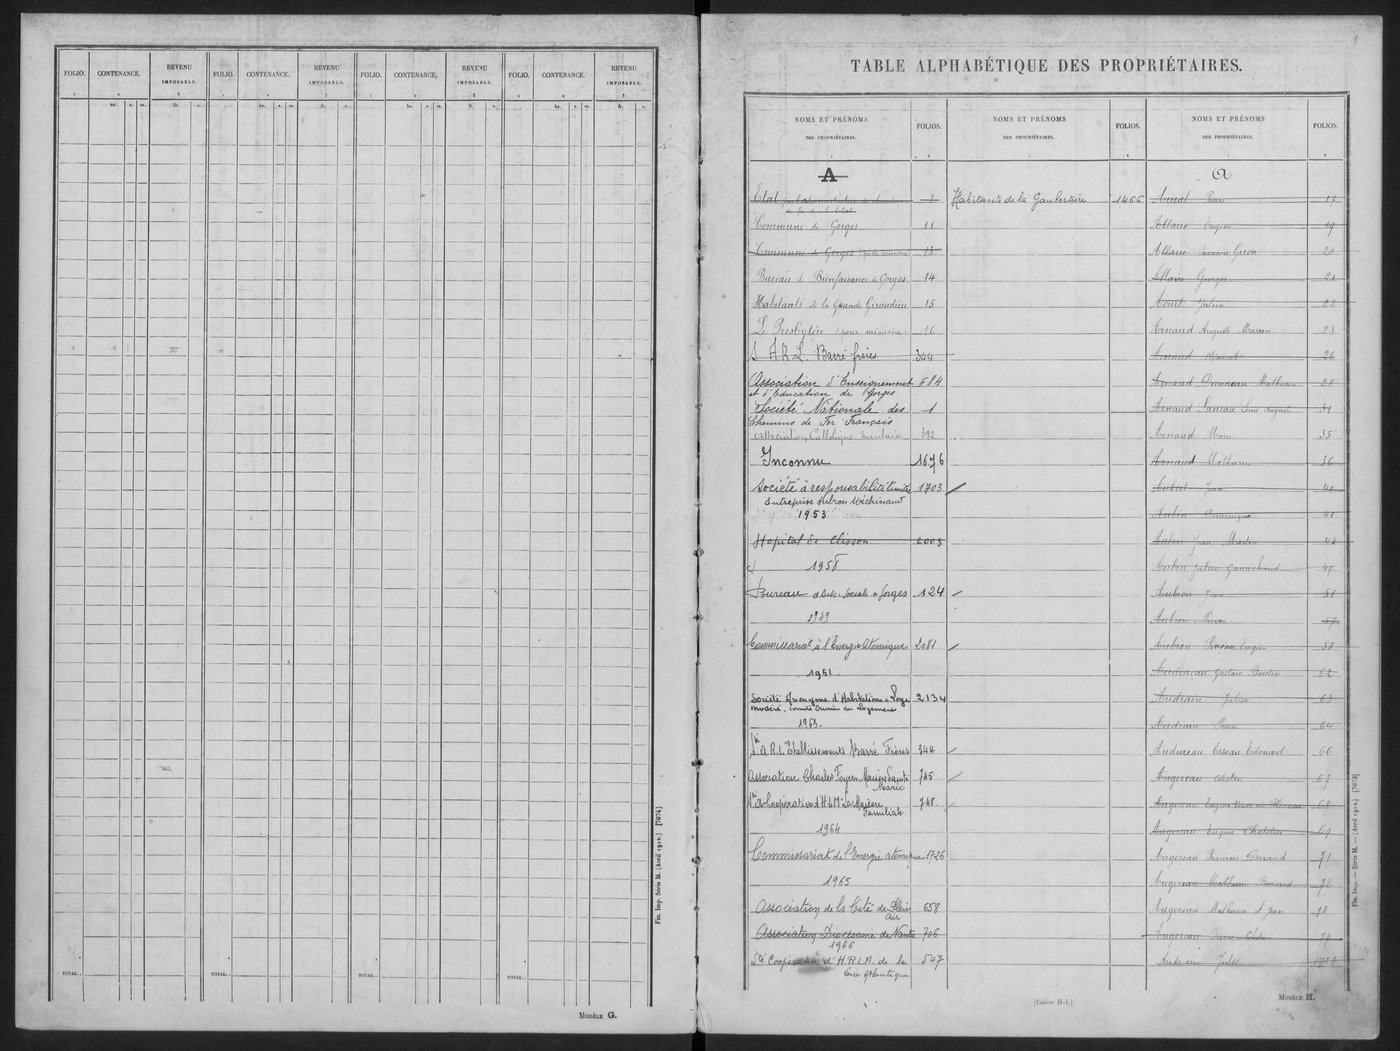 FOLIO. CONTENANCE. REVENU IMPOSABLE. FOLIO. CONTENANCE. REVENU IMPOSABLE. FOLIO. CONTENANCE. REVENU IMPOSABLE. FOLIO. CONTENANCE. REVENU IMPOSABLE.
TOTAL.. TOTAL.. TOTAL.. TOTAL..
Fin. Imp. Série M. (Avril 1912.) [7074]
MODÈLE G.
TABLE ALPHABÉTIQUE DES PROPRIÉTAIRES.
NOMS ET PRÉNOMS DES PROPRIÉTAIRES. FOLIOS. NOMS ET PRÉNOMS DES PROPRIÉTAIRES. FOLIOS. NOMS ET PRÉNOMS DES PROPRIÉTAIRES. FOLIOS.
A
Etat par l'administration des chemins 1
de fer de l'Etat
Commune de Gorges 11
Commune de Gorges 13
Bureau de Bienfaisance de Gorges 14
Habitants de la Grande Giraudière 15
Le Presbytère (pour mémoire) 16
S.A.R.L. Barré frères 344
Association d'Enseignement 684
et d'Education de Gorges
Société Nationale des 1
Chemins de Fer Français
Association Catholique 392
Inconnu 1676
Société à responsabilité limitée 1703
Entreprise Aubron Michinaud
1953
Hopital de Clisson 2003
1958
Bureau d'Aide Sociale de Gorges 124
1959
Commissariat à l'Energie Atomique 2081
1961.
Société Anonyme d'Habitations à Loyer 2134
modéré, Comité Ouvrier du Logement
1963.
Sté A.R.L. Etablissements Barré Frères 344
Association Charles Foyer Marie Sainte 745
Marie
Sté Coopérative d'H.L.M. La Maison 748
Familiale.
1964
Commissariat de l'Energie atomique 1726
1965
Association de la Cité de Plein 658
air
Association Diocésaine de Nantes 706
1966
Sté Coopérative d'H.R.L.M. de la 547
Loire Atlantique
Habitants de la Gaubertière 1466
a
17
Allaire Eugène 19
Allaire François Giron 20
Allaire Georges 21
Julien 22
Arnaud Auguste Masson 23
Arnaud Clément 26
Arnaud Mathurin 28
Arnaud Louis August 31
Arnaud Marie 35
Arnaud Mathurin 36
Aubert Jean 40
Aubin Dominique 41
Aubin Jean Martin 43
Aubin Julien 49
Aubron Jean 51
Aubron Pierre 57
Aubron Pineau Eugène 58
Audineau Gustave Boutin 62
Audrain Julien 63
Audrain Pierre 64
Audureau Esseau Edouard 66
Augereau 67
Augereau Eugène 68
Augereau Eugène Chatelier 69
Augereau François Durand 71
Augereau Mathurin 72
Augereau Mathurin et Jean 78
Augereau Pierre 79
Audrain Jules 1721
Fin. Imp. — Série M. — (Avril 1912.) [7073]
(Cahier H-1.)
MODÈLE H.